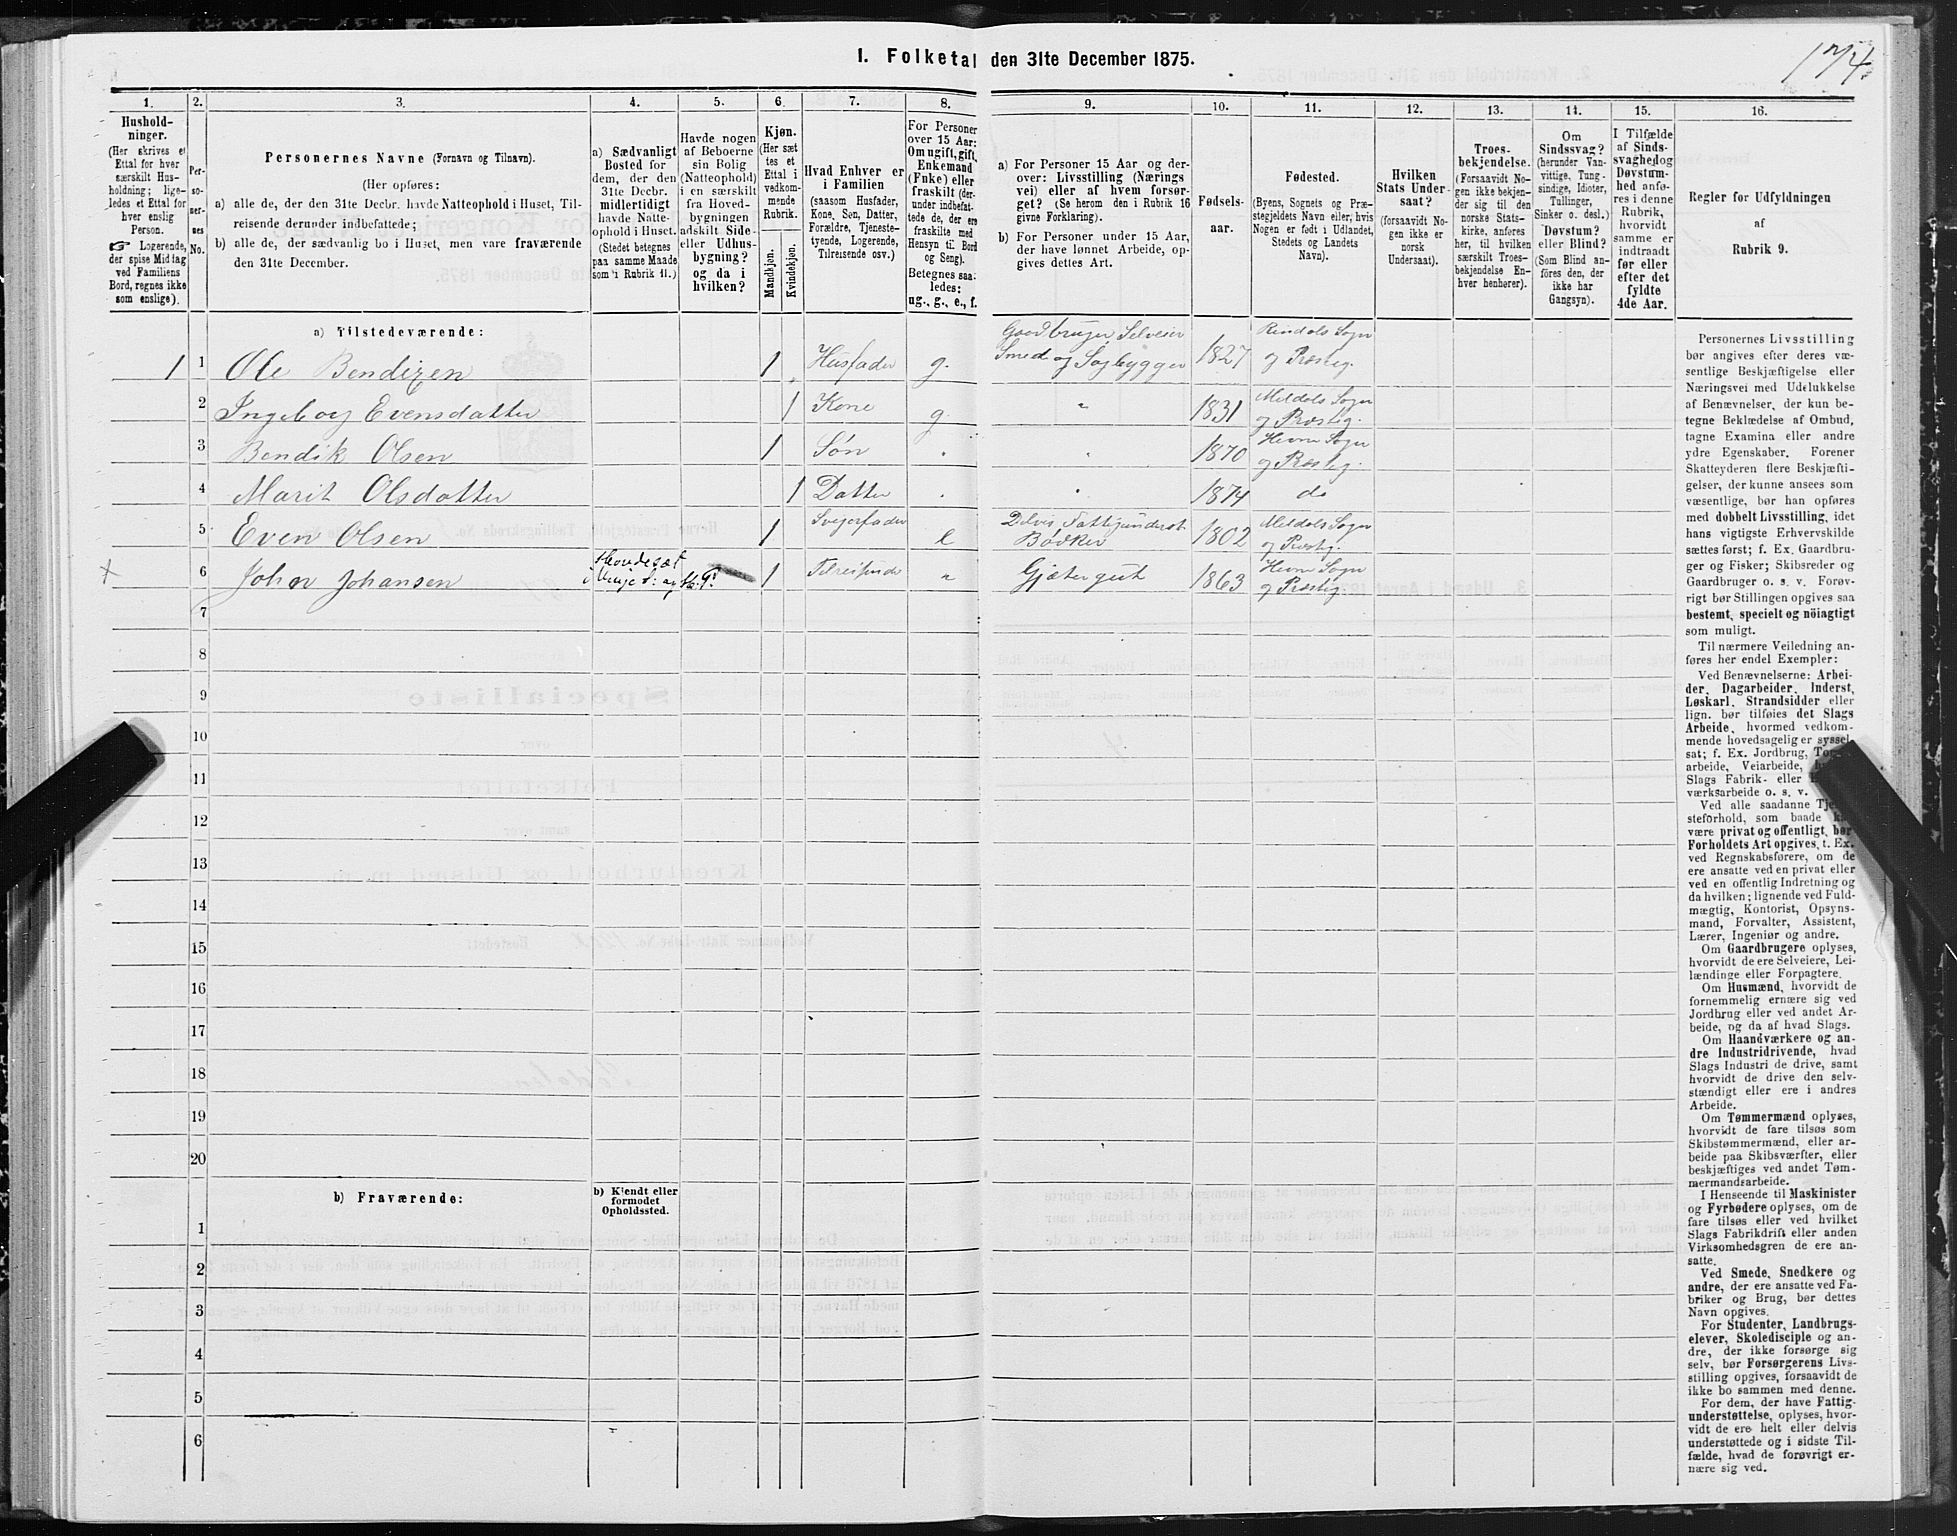 174
I. Folketal den 31te December 1875.
1.
2.
3.
4.
5.
6.
7.
8.
9.
10.
11.
12.
13.
14.
15.
16.
Hushold-
ninger.
(Her skrives et
Ettal for hver
særskilt Hus-
holdning; lige-
ledes et Ettal for
hver enslig
Person.
☞ Logerende,
der spise Midtag
ved Familiens
Bord, regnes ikke
som enslige).
Per-
so-
ner-
nes
No.
Personernes Navne (Fornavn og Tilnavn).
(Her opføres:
a) alle de, der den 31te Decbr. havde Natteophold i Huset, Til-
reisende derunder indbefattede;
b) alle de, der sædvanlig bo i Huset, men vare fraværende
den 31te December.
a) Sædvanligt
Bosted for
dem, der den
31te Decbr.
midlertidigt
havde Natte-
ophold i Huset.
(Stedet betegnes
paa samme Maade
som i Rubrik 11.)
Havde nogen
af Beboerne
sin Bolig
(Natteophold)
i en særskilt
fra Hoved-
bygningen
adskilt Side-
eller Udhus-
bygning?
og da i
hvilken?
Kjøn.
(Her sæt
tes et
Ettal i
vedkom-
mende
Rubrik.
Mandkjøn.
Kvindekjøn.
Hvad Enhver er
i Familien
(saasom Husfader,
Kone, Søn, Datter,
Forældre, Tjeneste-
tyende, Logerende,
Tilreisende osv.)
For Personer
over 15 Aar:
Om ugift, gift,
Enkemand
(Enke) eller
fraskilt (der-
under indbefat-
tede de, der ere
fraskilte med
Hensyn til Bord
og Seng).
Betegnes saa-
ledes:
ug., g., e., f.
a) For Personer 15 Aar og der-
over: Livsstilling (Nærings
vei) eller af hvem forsør-
get? (Se herom den i Rubrik 16
givne Forklaring).
b) For Personer under 15 Aar,
der have lønnet Arbeide, op-
gives dettes Art.
Fødsels-
aar.
Fødested.
(Byens, Sognets og Præ-
stegjeldets Navn eller, hvis
Nogen er født i Udlandet,
Stedets og Landets
Navn).
Hvilken
Stats Under-
saat?
(forsaavidt No-
gen ikke er
norsk
Undersaat).
Troes-
bekjendelse.
(Forsaavidt No-
gen ikke bekjen-
der sig til den
norske Stats-
kirke, anføres
her, til hvilken
særskilt Troes-
bekjendelse En-
hver henhører).
Om
Sindssvag?
(herunder Van-
vittige, Tung-
sindige, Idioter,
Tullinger,
Sinker o. desl.)
Døvstum?
eller Blind?
(Som Blind an-
føres den, der
ikke har
Gangsyn).
I Tilfælde
af Sinds-
svaghed og
Døvstum-
hed anfø-
res i denne
Rubrik,
hvorvidt
samme er
indtraadt
før eller
efter det
fyldte
4de Aar.
Regler for Udfyldningen
af
Rubrik 9.
a) Tilstedeværende:
1 1 Ole Bendixen 1 Husfader g. Gaardbruger Selveier Smed og Sagbygger 1827 Rindals Sogn og Præsteg.
2 Ingeborg Evensdatter 1 Kone g. " 1831 Meldals Sogn og Præsteg.
3 Bendik Olsen 1 Søn 1870 Hevne Sogn og Præsteg.
4 Marit Olsdatter 1 Datter 1874 do
5 Even Olsen 1 Svigerfader e Delvis Fattigunderst. Bødker 1802 Meldals Sogn og Præsteg.
+ 6 John Johansen 1 Tilreisende " Gjætergut 1863 Hevne Sogn og Præsteg.
7
8
9
10
11
12
13
14
15
16
17
18
19
20
b) Fraværende:
b) Kjendt eller
formodet
Opholdssted.
1
2
3
4
5
6
Personernes Livsstilling
bør angives efter deres væ-
sentlige Beskjæftigelse eller
Næringsvei med Udelukkelse
af Benævnelser, der kun be-
tegne Beklædelse af Ombud,
tagne Examina eller andre
ydre Egenskaber. Forener
Skatteyderen flere Beskjæfti-
gelser, der kunne ansees som
væsentlige, bør han opføres
med dobbelt Livsstilling, idet
hans vigtigste Erhvervskilde
sættes først; f. Ex. Gaardbru-
ger og Fisker; Skibsreder og
Gaardbruger o. s. v. Forøv-
rigt bør Stillingen opgives saa
bestemt, specielt og nöiagtigt
som muligt.
Til nærmere Veiledning an-
føres her endel Exempler:
Ved Benævnelserne: Arbei-
der, Dagarbeider, Inderst,
Løskarl, Strandsidder eller
lign. bør tilføies det Slags
Arbeide, hvormed vedkom-
mende hovedsagelig er syssel-
sat; f. Ex. Jordbrug,
arbeide, Veiarbeide,
Slags Fabrik- eller
værksarbeide o. s. v.
Ved alle saadanne
steforhold, som baade
være privat og offentligt, bør
Forholdets Art opgives, t. Ex.
ved Regnskabsførere, om de
ere ansatte ved en privat eller
ved en offentlig Indretning og
da hvilken; lignende ved Fuld-
mægtig, Kontorist, Opsyns-
mand, Forvalter, Assistent,
Lærer, Ingeniør og andre.
Om Gaardbrugere oplyses,
hvorvidt de ere Selveiere, Lei-
lændinge eller Forpagtere.
Om Husmænd, hvorvidt de
fornemmelig ernære sig ved
Jordbrug eller ved andet Ar-
beide, og da af hvad Slags.
Om Haandværkere og an-
dre Industridrivende, hvad
Slags Industri de drive, samt
hvorvidt de drive den selv-
stændigt eller ere i andres
Arbeide.
Om Tømmermænd oplyses,
hvorvidt de fare tilsøs som
Skibstømmermænd, eller ar-
beide paa Skibsværfter, eller
beskjæftiges ved andet Tøm-
mermandsarbeide.
I Henseende til Maskinister
og Fyrbødere oplyses, om de
fare tilsøs eller ved hvilket
Slags Fabrikdrift eller anden
Virksomhedsgren de ere an-
satte.
Ved Smede, Snedkere og
andre, der ere ansatte ved Fa-
briker og Brug, bør dettes
Navn opgives.
For Studenter, Landbrugs-
elever, Skoledisciple og an-
dre, der ikke forsørge sig
selv, bør Forsørgerens Livs-
stilling opgives, forsaavidt de
ikke bo sammen med denne.
For dem, der have Fattig-
understøttelse, oplyses, hvor-
vidt de ere helt eller delvis
understøttede og i sidste Til-
fælde, hvad de forøvrigt er-
nære sig ved.